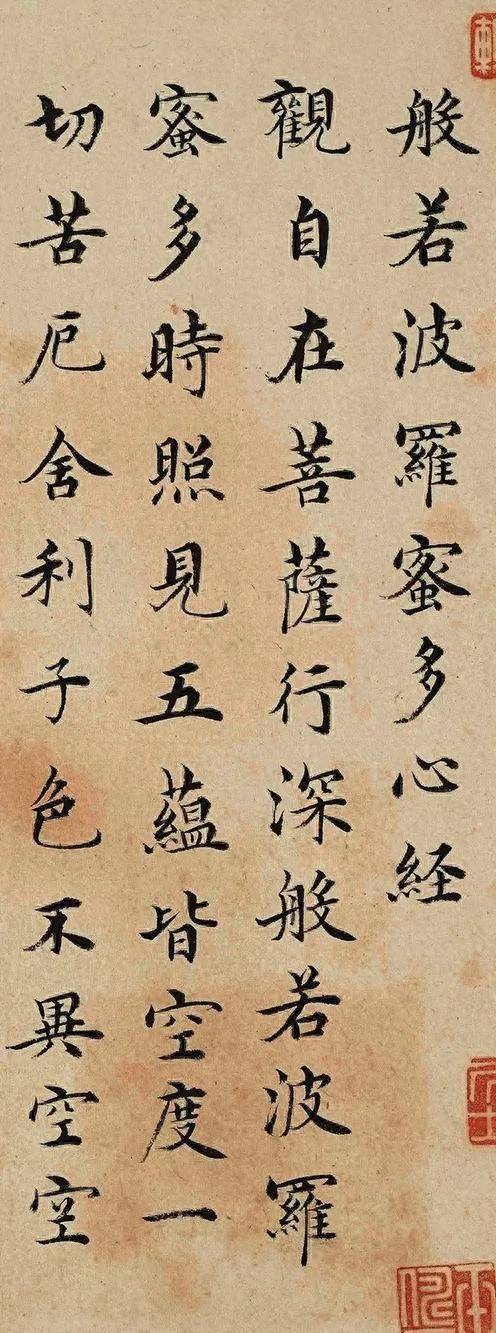 般若波羅蜜多心経
觀自在菩薩行深般若波羅
蜜多時照見五蘊皆空度一
切苦厄舍利子色不異空空